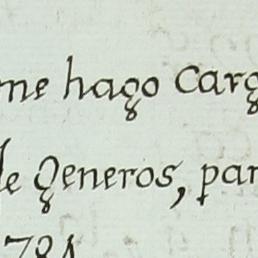 me hago Carg
de Generos, par
784